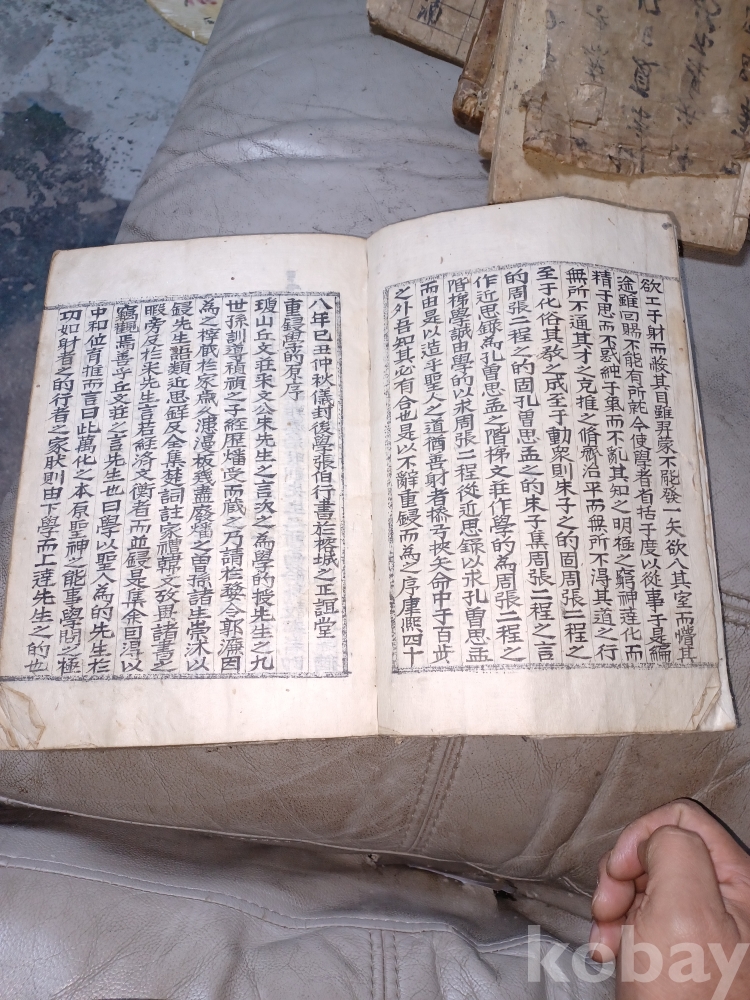 欲工于射而蔽其目雖羿蒙不能發一矢欲入其室而懵其
途雖回賜不能有所就今使學者省括于度以從事于是編
精于思而不眩純于氣而不亂其知之明極之窮神達化而
無所不通其才之克推之脩齊治平而無所不得其道之行
至于化俗其敎之成至于動衆則朱子之的固周張二程之
的周張二程之的固孔曾思孟之的朱子集周張二程之言
作近思録爲孔曾思孟之階梯文莊作學的爲周張二程之
階梯學誠由學的以求周張二程從近思録以求孔曾思孟
而由是以造乎聖人之道猶善射者挢弓挾矢命中于百步
之外吾知其必有合也是以不辭重鋟而爲之序康熙四十
八年己丑仲秋儀封後學張伯行書於榕城之正誼堂
重鋟學的原序
瓊山丘文莊采文公朱先生之言次之爲學的授先生之九
世孫訓導積積之子經歷燔受而藏之乃請於婺令郭濂因
爲之梓藏於家歲久漫漶板幾盡廢燔之曾孫諸生崇沐以
鋟先生語類近思録及全集楚詞註家禮韓文攷異諸書之
暇旁及於朱先生言若經濟文衡者而並鋟是集余回得以
竊觀焉善乎丘文莊之言先生也曰學以聖人爲的先生於
中和位育推而言曰此萬化之本原聖神之能事學問之極
功如射者之的行者之家肰則由下學而上達先生之的也
kobay